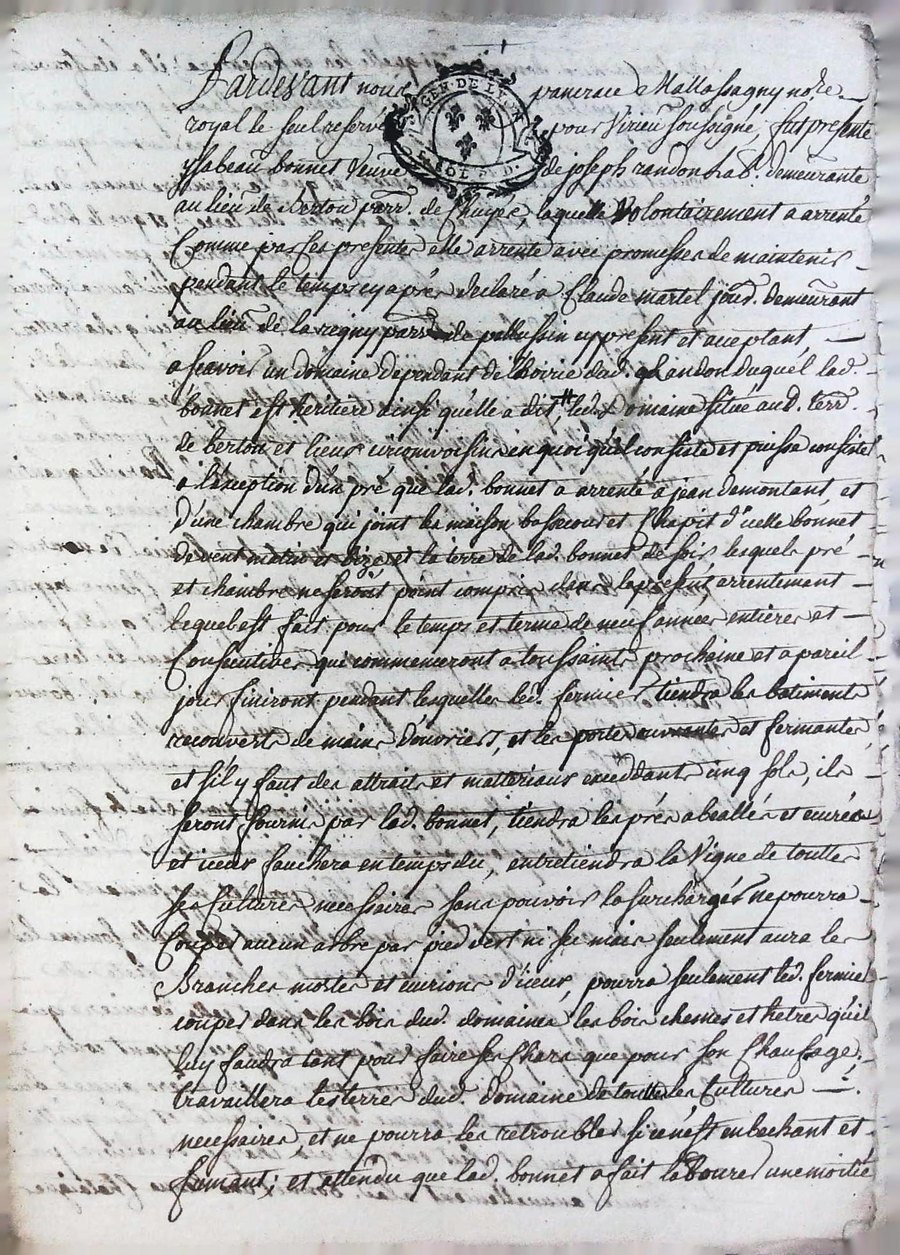 Pardevant nous pancrace Mallassagny no.re
GEN. DE LYON
SOL
royal le seul reservé pour Virieu soussigné, fut presente
ysabeau bonnet veuve de joseph randon hab. demeurante
au lieu de Berton parr. de laquelle volontairement a arrenté
Comme par ces presente elle arrente avec promesses de maintenir
pendant le temps cy aprés declaré a Claude martel jourd. demeurant
au lieu de la regny parr. de pellussin cy present et acceptant,
a scavoir un domaine dependant de l'hoirie dud. Randon duquel lad.
bonnet est heritiere ainsi qu'elle a dit, led. Domaine situé aud. terr.
de berton et lieux circonvoisins en quoi qu'il consiste et puisse consister
a l'exception d'un pré que lad. bonnet a arrenté a jean demontant, et
d'une chambre qui joint les maison bassecour et Chapit d'icelle bonnet
de vent matin et bize et la terre de lad. bonnet de soir lesquels pré
et chambre ne seront point compris dans le present arrentement
lequel est fait pour le temps et terme de neuf année entieres et
Consecutives qui commenceront a toussaints prochaine et a pareil
jour finiront pendant lesquelles led. fermier tiendra les batiment
recouverts de mains d'ouvriers, et les portes ouvrantes et fermante,
et s'il y faut des attraits et matteriaux exceddants cinq sols, ils
seront fournis par lad. bonnet, tiendra les prés abeallés et curées
et iceux fauchera en temps du, entretiendra la Vigne de toutte
ses Cultures necessaires sans pouvoir la surchargés ne pourra
Couper aucun arbre par pied vert ni sec mais seulement aura les
Branches mortes et d'iceux, pourra seulement led. fermier
couper dans les bois dud. domaine les bois chesnes et hetres qu'il
luy faudra tant pour faire ses Chars que pour son Chauffage,
travaillera les terres dud. domaine de toutte les Cultures
necessaires, et ne pourra les retroubler si ce n'est en bechant et
fumant; et attendu que lad. bonnet a fait labourer une moitié